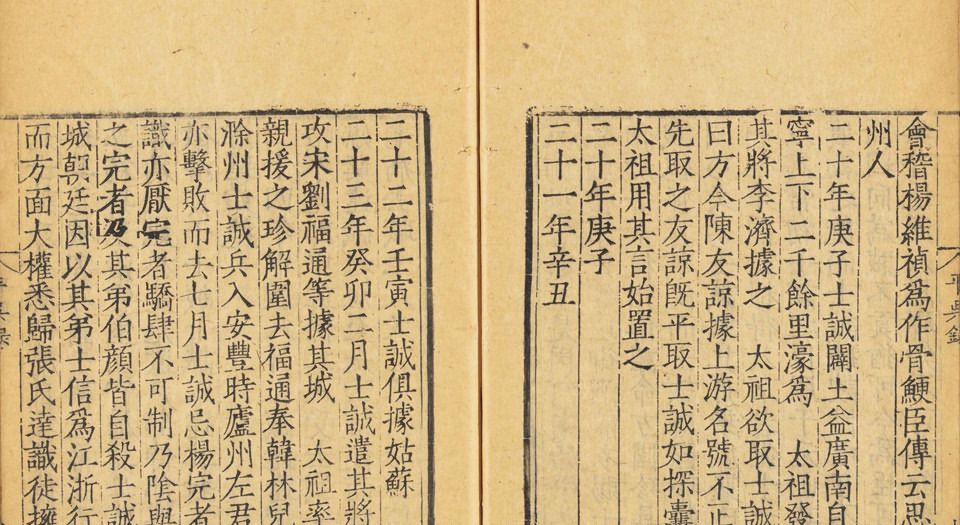 會稽楊維禎爲作骨鯁臣傳云思
州人
二十年庚子士誠闢土益廣南自
寧上下二千餘里濠爲 太祖發
其將李濟據之 太祖欲取士誠
曰方今陳友諒據上游名號不正
先取之友諒旣平取士誠如探囊
太祖用其言始置之
二十年庚子
二十一年辛丑
二十二年壬寅士誠俱據姑蘇
二十三年癸卯二月士誠遣其將
攻宋劉福通等據其城 太祖率
親援之珍解圍去福通奉韓林兒
滁州士誠兵入安豐時廬州左君
亦擊敗而去七月士誠忌楊完者
識亦厭完者驕肆不可制乃陰與
之完者乃其弟伯顏皆自殺士誠
城朝廷因以其弟士信爲江浙行
而方面大權悉歸張氏達識徒擁
平吳錄